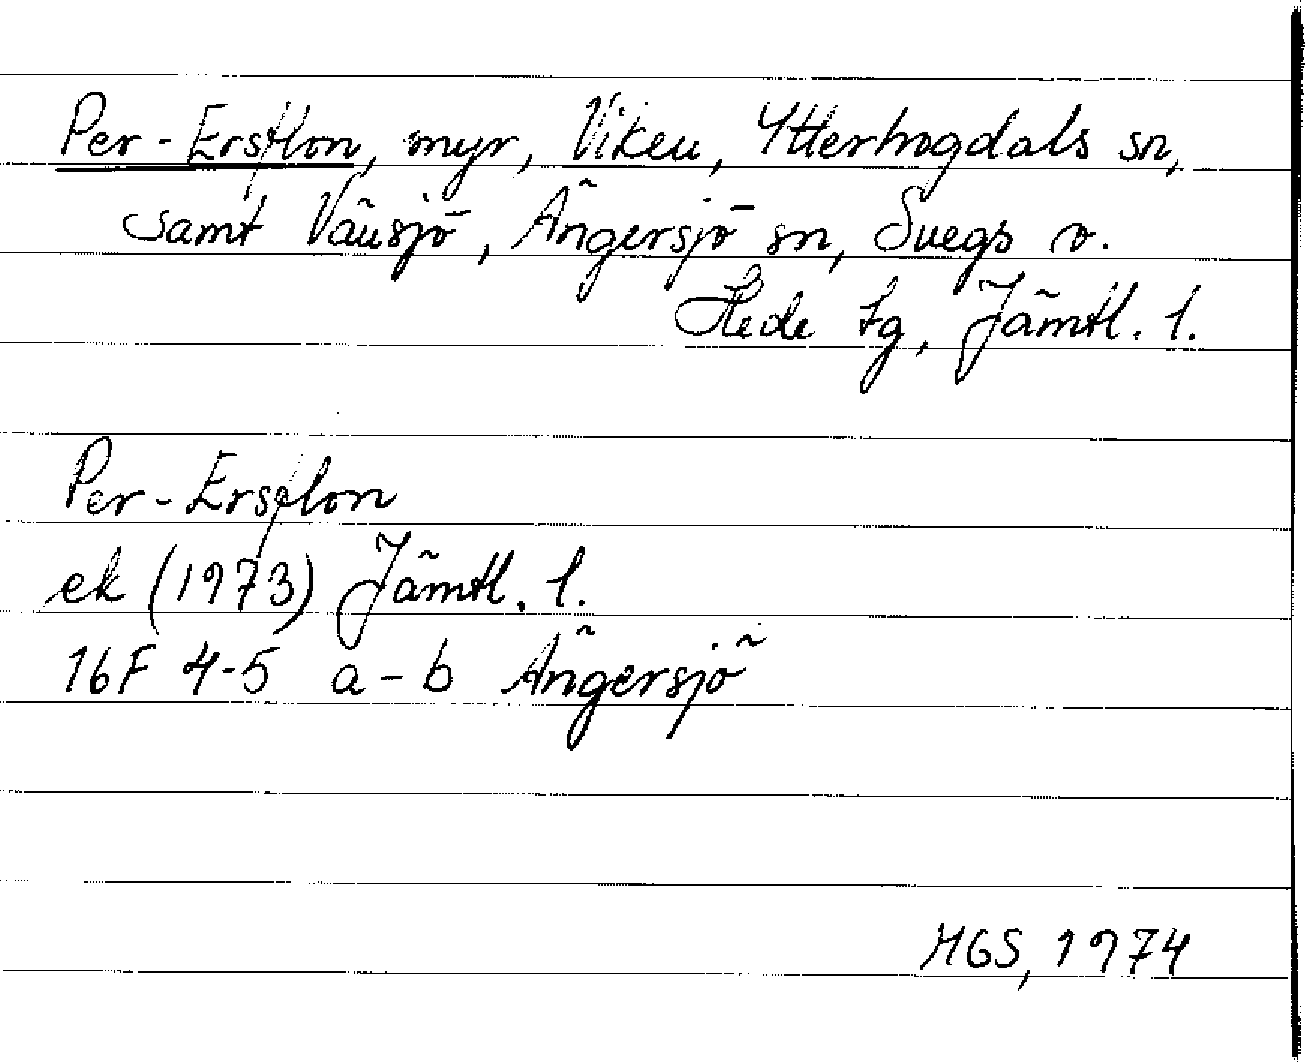 Per-Ersflon, myr, Viken, Ytterhogdals sn,
samt Vänsjö, Ängersjö sn, Svegs o.
Hede tg, Jämtl. l.
Per-Ersflon
ek (1973) Jämtl. l.
16F 4-5 a-b Ängersjö
HGS, 1974